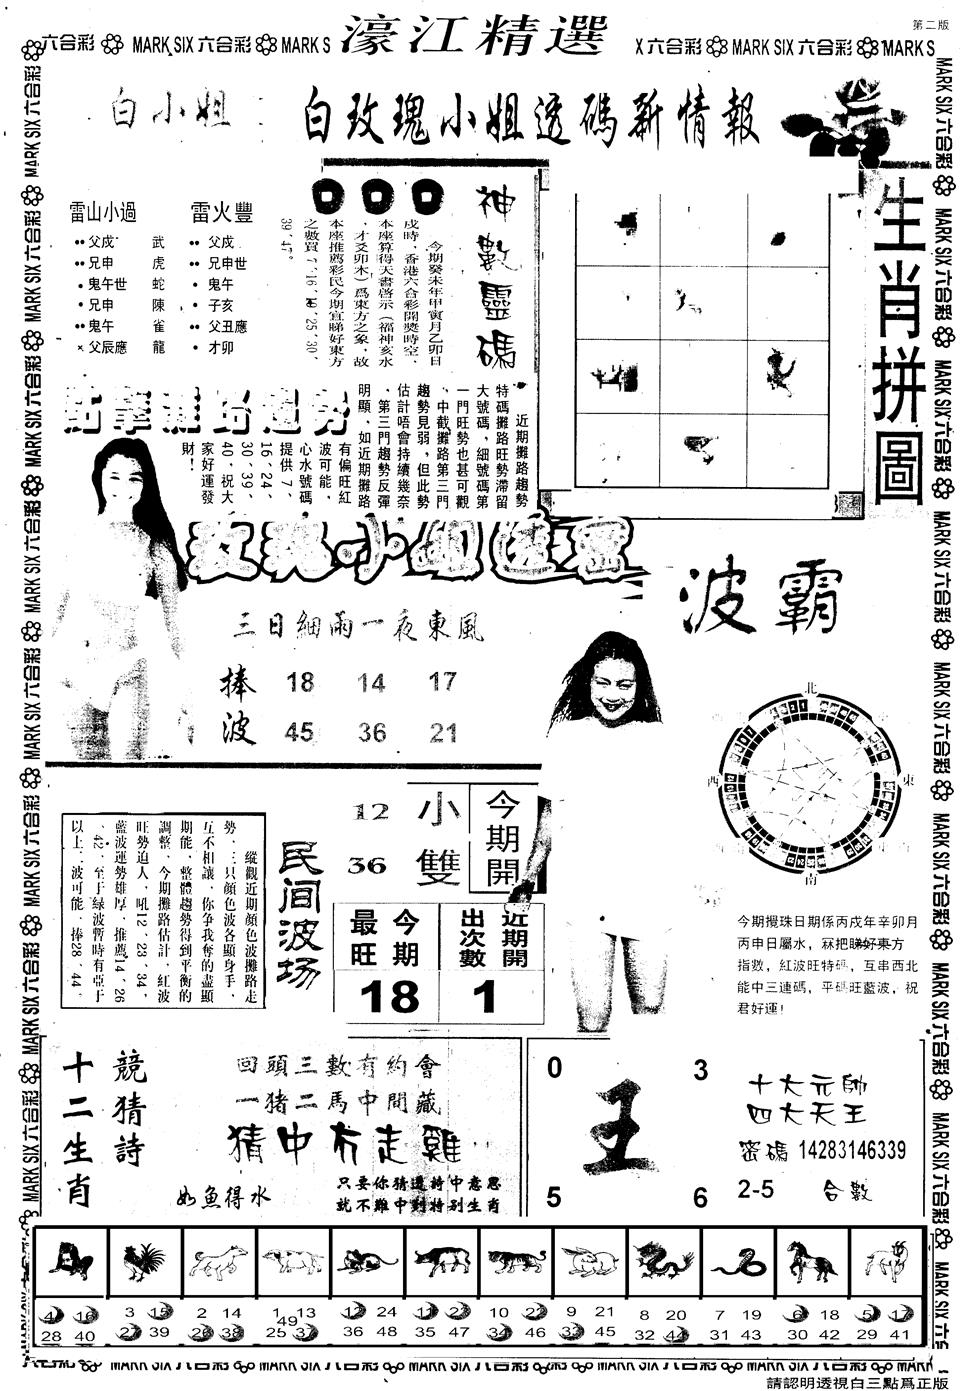 第二版
六合彩 MARK SIX 六合彩 MARK S 濠江精選 X 六合彩 MARK SIX 六合彩 MARK S
白小姐 白玫瑰小姐透碼新情報
生肖拼圖
雷山小過
父戌 武
兄申 虎
鬼午世 蛇
兄申 陳
鬼午 雀
父辰應 龍
雷火豐
父戌
兄申世
鬼午
子亥
父丑應
才卯
神數靈碼
今期癸未年甲寅月乙卯日
戌時，香港六合彩開獎時空，
本座算得天書啓示（福神亥水
，才爻卯木）爲東方之象，故
本座推薦彩民今期宜睇好東方
39、47。
近期攤路趨勢
特碼攤路旺勢滯留
大號碼，細號碼第
一門旺勢也甚可觀
，中截攤路第三門
趨勢見弱，但此勢
估計唔會持續幾奈
，第三門趨勢反彈
明顯，如近期攤路
有偏旺紅
波可能，
心水號碼
提供7、
16、24、
30、39、
40，祝大
家好運發
財！
三日細雨一夜東風
捧波
18 14 17
45 36 21
波霸
北
西 東
南
今期攪珠日期係丙戌年辛卯月
丙申日屬水，冧把睇好東方
指數，紅波旺特碼，互串西北
能中三連碼，平碼旺藍波，祝
君好運！
今期開
小雙
12
36
最旺 今期
18
出次數 近期開
1
民间波场
縱觀近期顔色波攤路走
勢，三只顔色波各顯身手，
互不相讓，你争我奪的盡顯
期能，整體趨勢得到平衡的
調整，今期攤路估計，紅波
旺勢迫人，吼12、23、34，
藍波運勢雄厚，推薦14、26
、42，至于緑波暫時有亞于
以上，波可能，捧28、44。
十二生肖
競猜詩
回頭三數有約會
一猪二馬中間藏
猜中冇走雞
如魚得水
只要你猜透詩中意思
就不難中到特别生肖
0 3
王
5 6
十大元帥
四大天王
密碼 14283146339
2-5 合數
4 16 28 40
3 15 27 39
2 14 26 38
1 13 25 37 49
12 24 36 48
11 23 35 47
10 22 34 46
9 21 33 45
8 20 32 44
7 19 31 43
6 18 30 42
5 17 29 41
請認明透視白三點爲正版